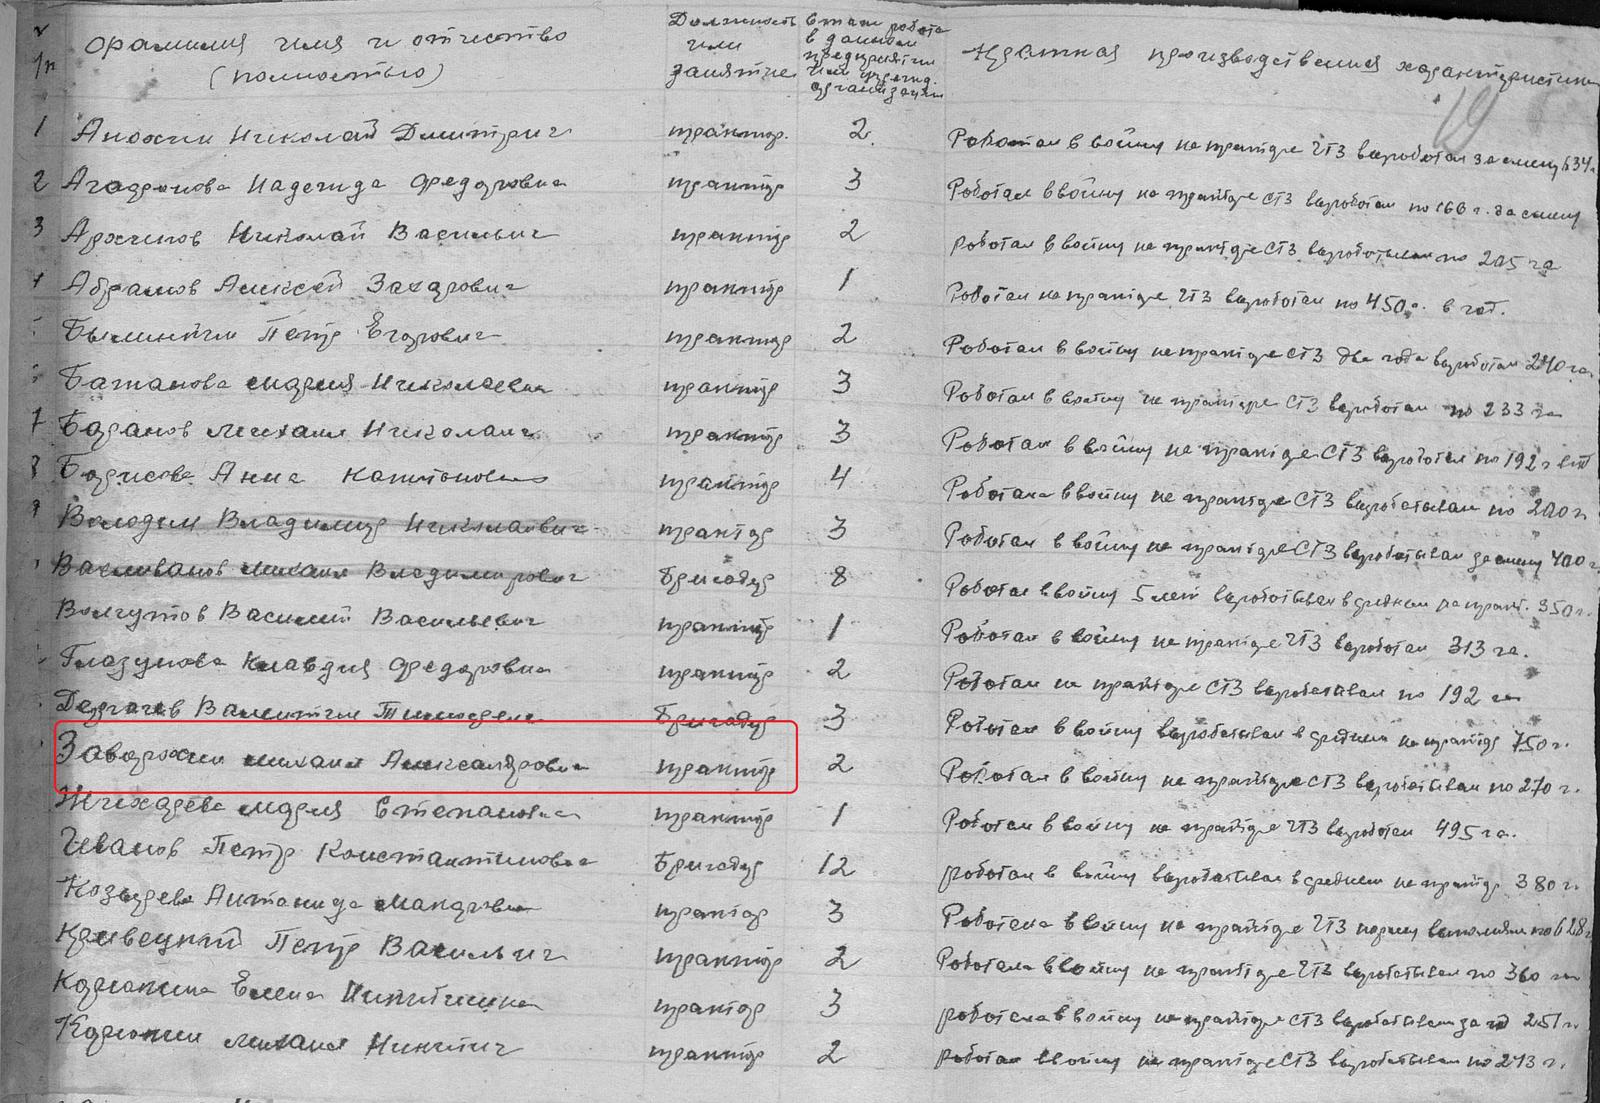 № фамилия имя и отчество Должность Стаж работы Краткая производственная характеристика
п/п (полностью) или в данном
занятие предприятии
или учрежд.
организации
19
1 Анохин Николай Дмитрич трактор. 2 Работал в войну на тракторе ЧТЗ выработал за смену 634 г.
2 Агафонова Надегида Федоровна трактор 3 Работал в войну на тракторе СТЗ выработал по 166 г. за смену
3 Архипов Николай Васильвич трактор 2 работал в войну на тракторе СТЗ выработывал по 205 га
4 Абрамов Алексей Захарович трактор 1 Работал на тракторе ЧТЗ выработал по 450 г. в год.
Былинкин Петр Егорович трактор 2 Работал в войну на тракторе СТЗ два года выработал 240 га.
Батанова Мария Николаевна трактор 3 Работал в войну на тракторе СТЗ выработал по 233 га
7 Баранов Михаил Николаич трактор 3 Работал в войну на тракторе СТЗ выработал по 192 г
8 Борисова Анна Капитоновна трактор 4 Работала в войну на тракторе СТЗ выработывал по 200 г.
9 Володин Владимир Николаивич трактор 3 Работал в войну на тракторе СТЗ выработывал за смену 400 г.
Михаил Владимирович Бригадир 8 Работал в войну 5 лет выработывал в среднем на тракт. 350 г.
Волгутов Василий Васильевич трактор 1 Работал в войну на тракторе ЧТЗ выработал 313 га.
Глазунова Клавдия Федоровна трактор 2 Работал на тракторе СТЗ выработывал по 192 га
Дергачев Валентин Бригадир 3 Работал в войну выработывал в среднем на трактор 750 г.
Заворохин Михаил Александрович трактор 2 Работал в войну на тракторе СТЗ выработывал по 270 г.
Жихарева Мария Степановна трактор 1 Работал в войну на тракторе ЧТЗ выработал 495 га.
Иванов Петр Константинович Бригадир 12 работал в войну выработывал в среднем на трактор 380 г.
Козырева Антанида Макаровна трактор 3 Работала в войну на тракторе ЧТЗ норму выполняла по 628 г
Кривецкий Петр Васильич трактор 2 Работала в войну на тракторе ЧТЗ выработывал по 360 га
Корюкина Елена Никитична трактор 3 работала в войну на тракторе СТЗ выработывал за год 251 г.
Корюкин Михаил Никитич трактор 2 работал в войну на тракторе СТЗ выработывал по 243 г.